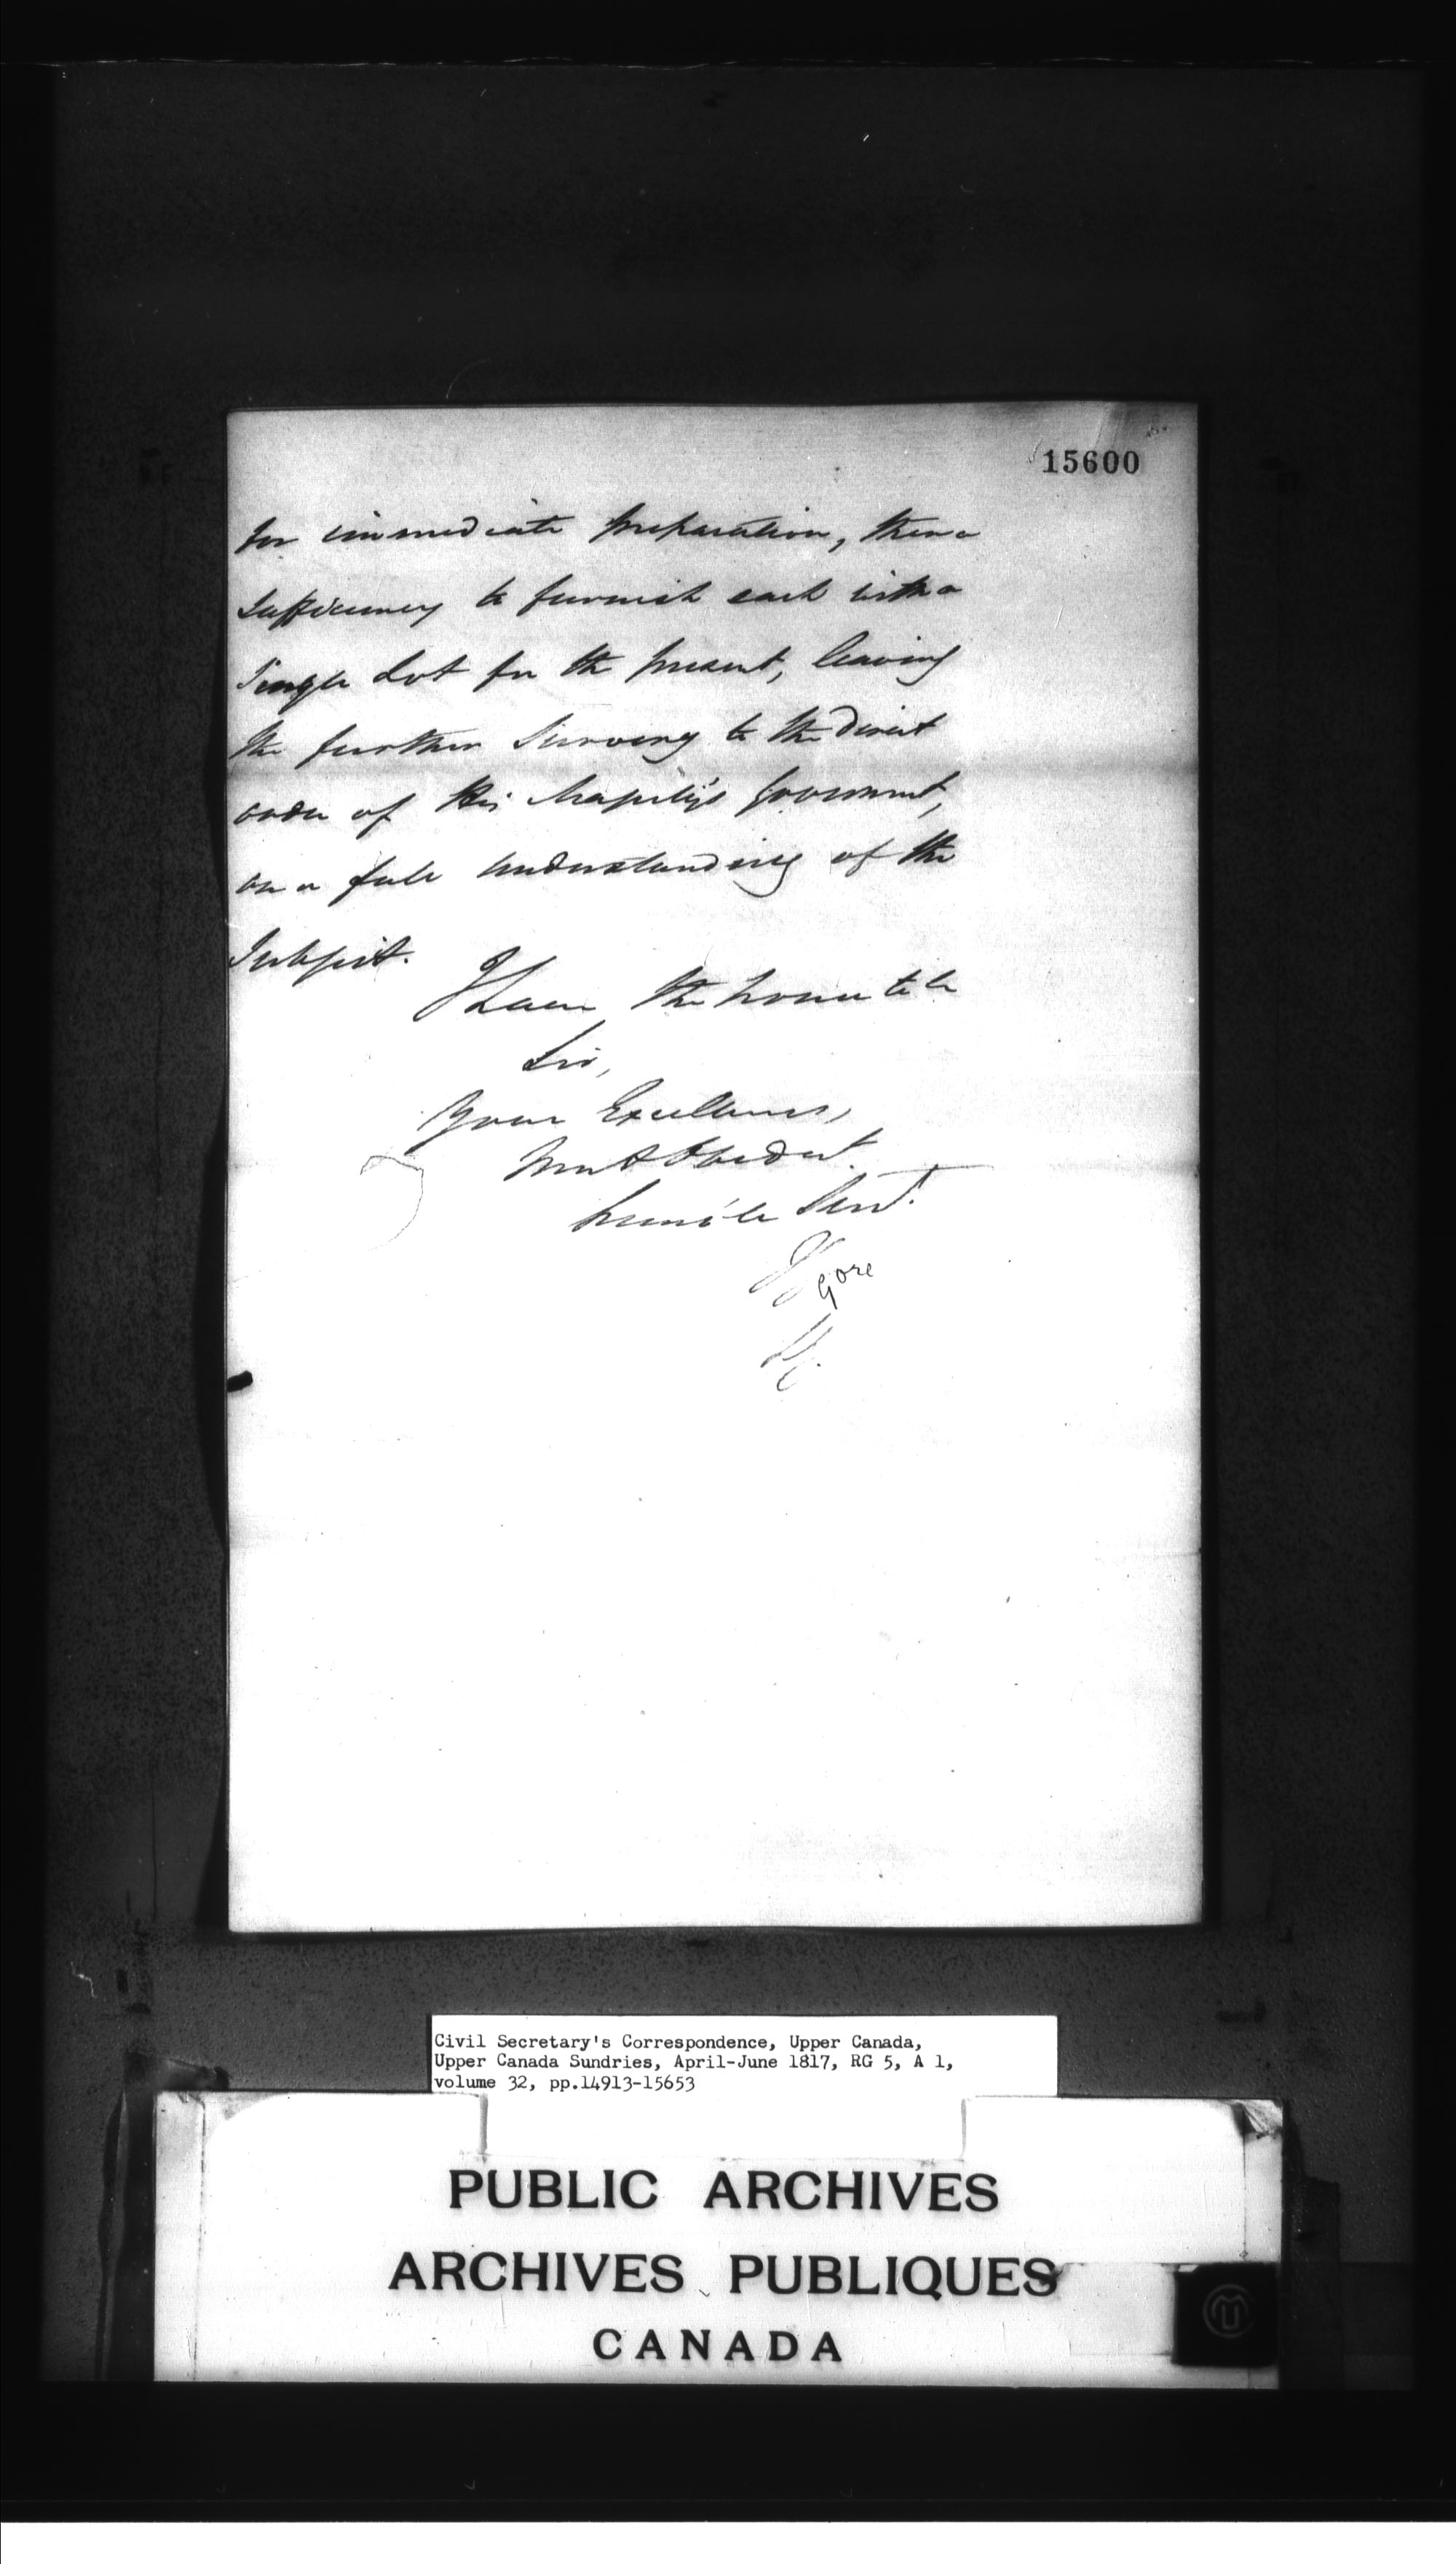 15600
for immediate preparation, than a
sufficiency to furnish each with a
Single Lot for the present, leaving
the further Survey to the direct
order of His Majesty's Government,
on a full understanding of the
Subject.
I have the honor to be
Sir,
Your Excellency's
Most Obedient
humble Servt.
Gore
Civil Secretary's Correspondence, Upper Canada,
Upper Canada Sundries, April-June 1817, RG 5, A 1,
volume 32, pp.14913-15653
PUBLIC ARCHIVES
ARCHIVES PUBLIQUES
CANADA